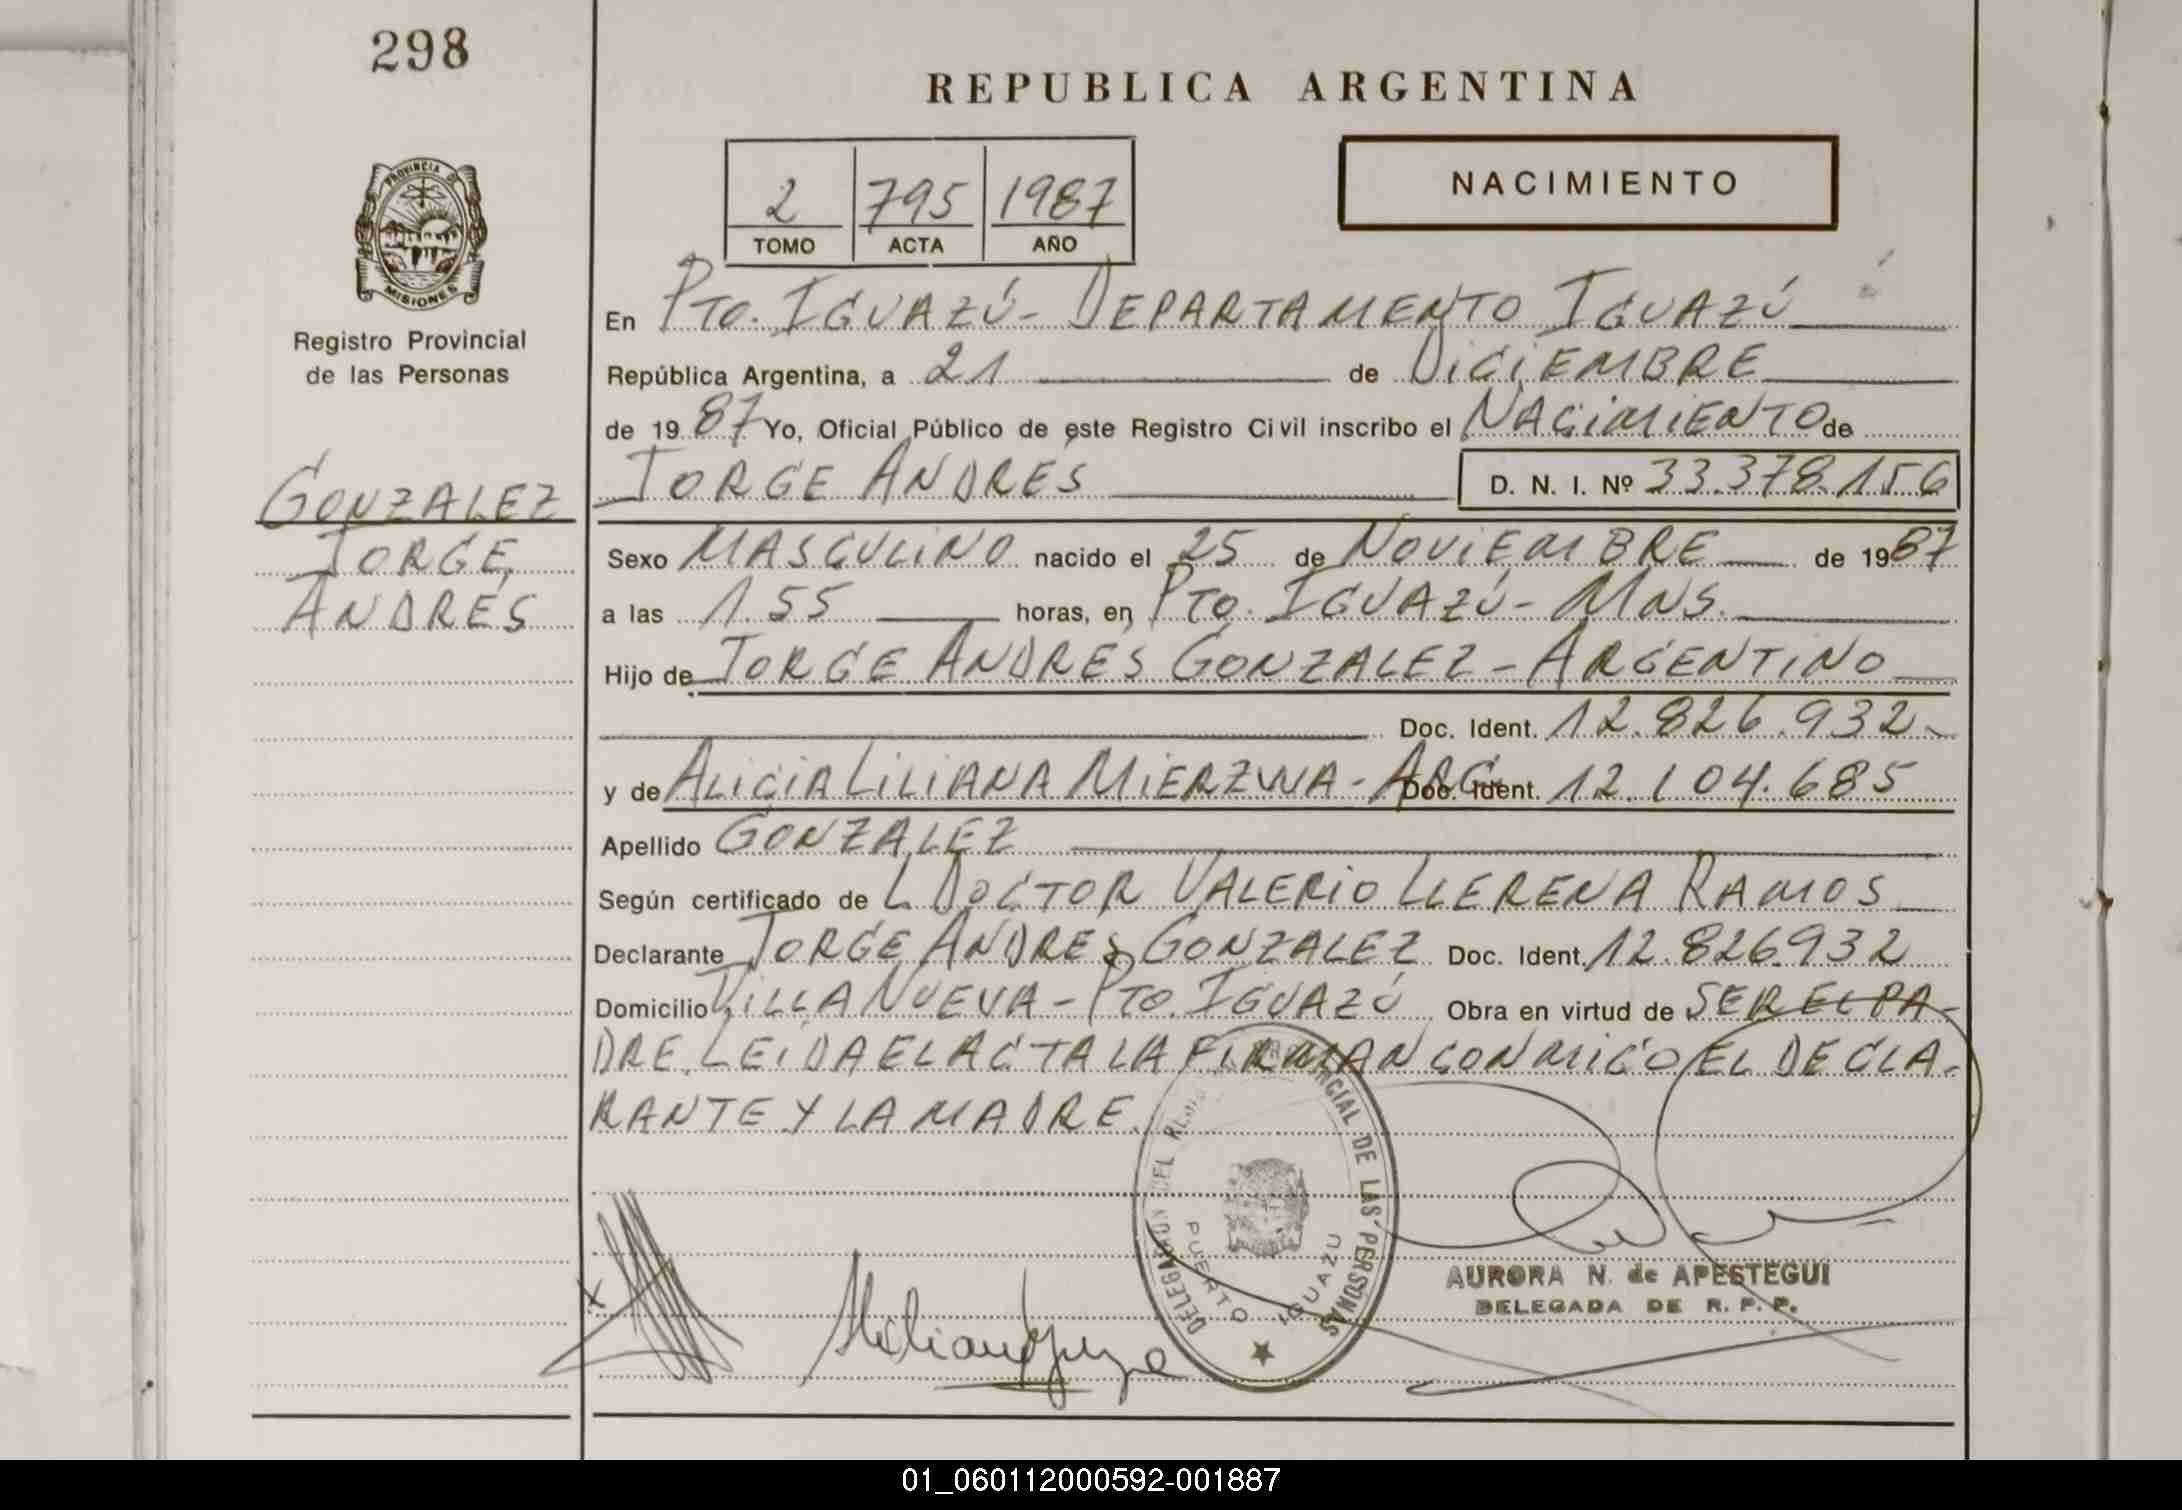 298
REPUBLICA ARGENTINA
2 795 1987
TOMO ACTA AÑO
NACIMIENTO
PROVINCIA D
MISIONES
Registro Provincial
de las Personas
GONZALEZ
JORGE
ANDRÉS
En PTO. IGUAZÚ - DEPARTAMENTO IGUAZÚ
República Argentina, a 21 de DICIEMBRE
de 1987 Yo, Oficial Público de este Registro Civil inscribo el NACIMIENTO de
JORGE ANDRÉS D. N. I. Nº 33.378.156
Sexo MASCULINO nacido el 25 de NOVIEMBRE de 1987
a las 1.55 horas, en PTO. IGUAZÚ - MNS.
Hijo de JORGE ANDRÉS GONZALEZ - ARGENTINO
Doc. Ident. 12.826.932-
y de ALICIA LILIANA MIERZWA - ARG Doc. Ident. 12.104.685
Apellido GONZALEZ
Según certificado de L DOCTOR VALERIO LLERENA RAMOS
Declarante JORGE ANDRES GONZALEZ Doc. Ident. 12.826.932
Domicilio VILLA NUEVA - PTO. IGUAZÚ Obra en virtud de SER EL PA-
DRE. LEIDA EL ACTA LA FIRMAN CONMIGO EL DECLA-
RANTE Y LA MADRE.
DELEGACION DEL PROVINCIAL DE LAS PERSONAS
PUERTO IGUAZU
AURORA N. de APESTEGUI
DELEGADA DE R. P. P.
01_060112000592-001887